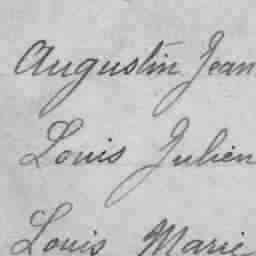 Augustin Jean
Louis Julien
Louis Marie